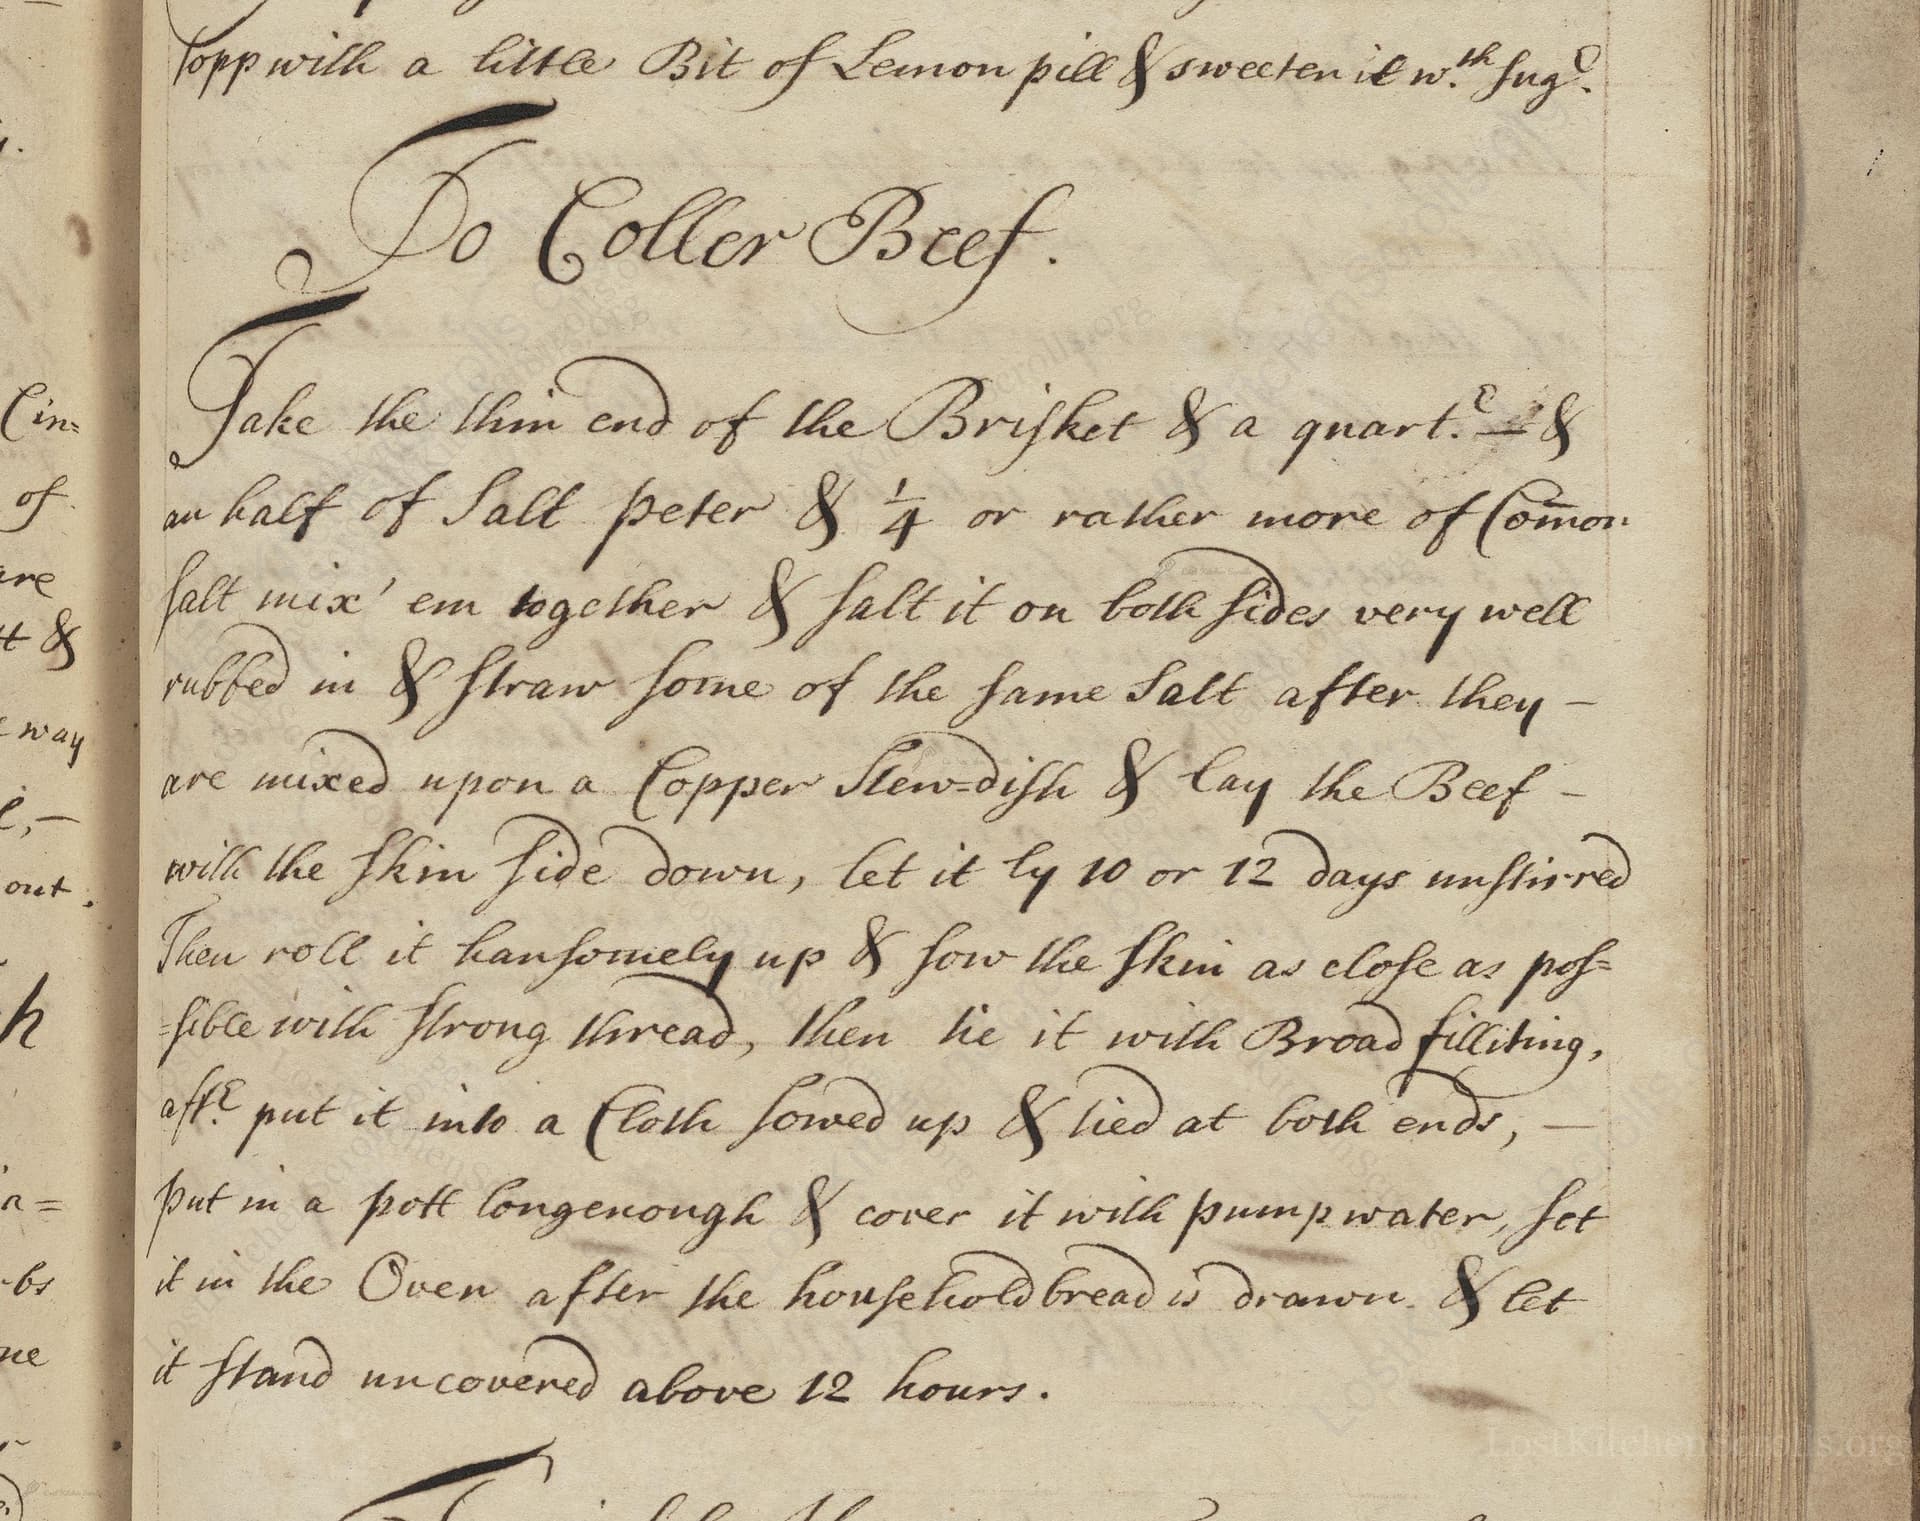 topp with a little Bit of Lemon pill & sweeten it w.th Sug.r
To Coller Beef.
Take the thin end of the Brisket & a quart.r — &
an half of Salt peter & 1/4 or rather more of Com̄on
salt mix' em together & salt it on both sides very well
rubbed in & straw some of the same Salt after they –
are mixed upon a Copper Stew=dish & lay the Beef –
with the skin side down, let it ly 10 or 12 days unstirred
Then roll it hansomely up & sow the skin as close as pos=
=sible with strong thread, then tie it with Broad filliting,
aft.r put it into a Cloth sowed up & tied at both ends, —
put in a pott longenough & cover it with pump water, set
it in the Oven after the household bread is drawn & let
it stand uncovered above 12 hours.
Cin=
of
are
&
way
out.
h
LostKitchenScrolls.org